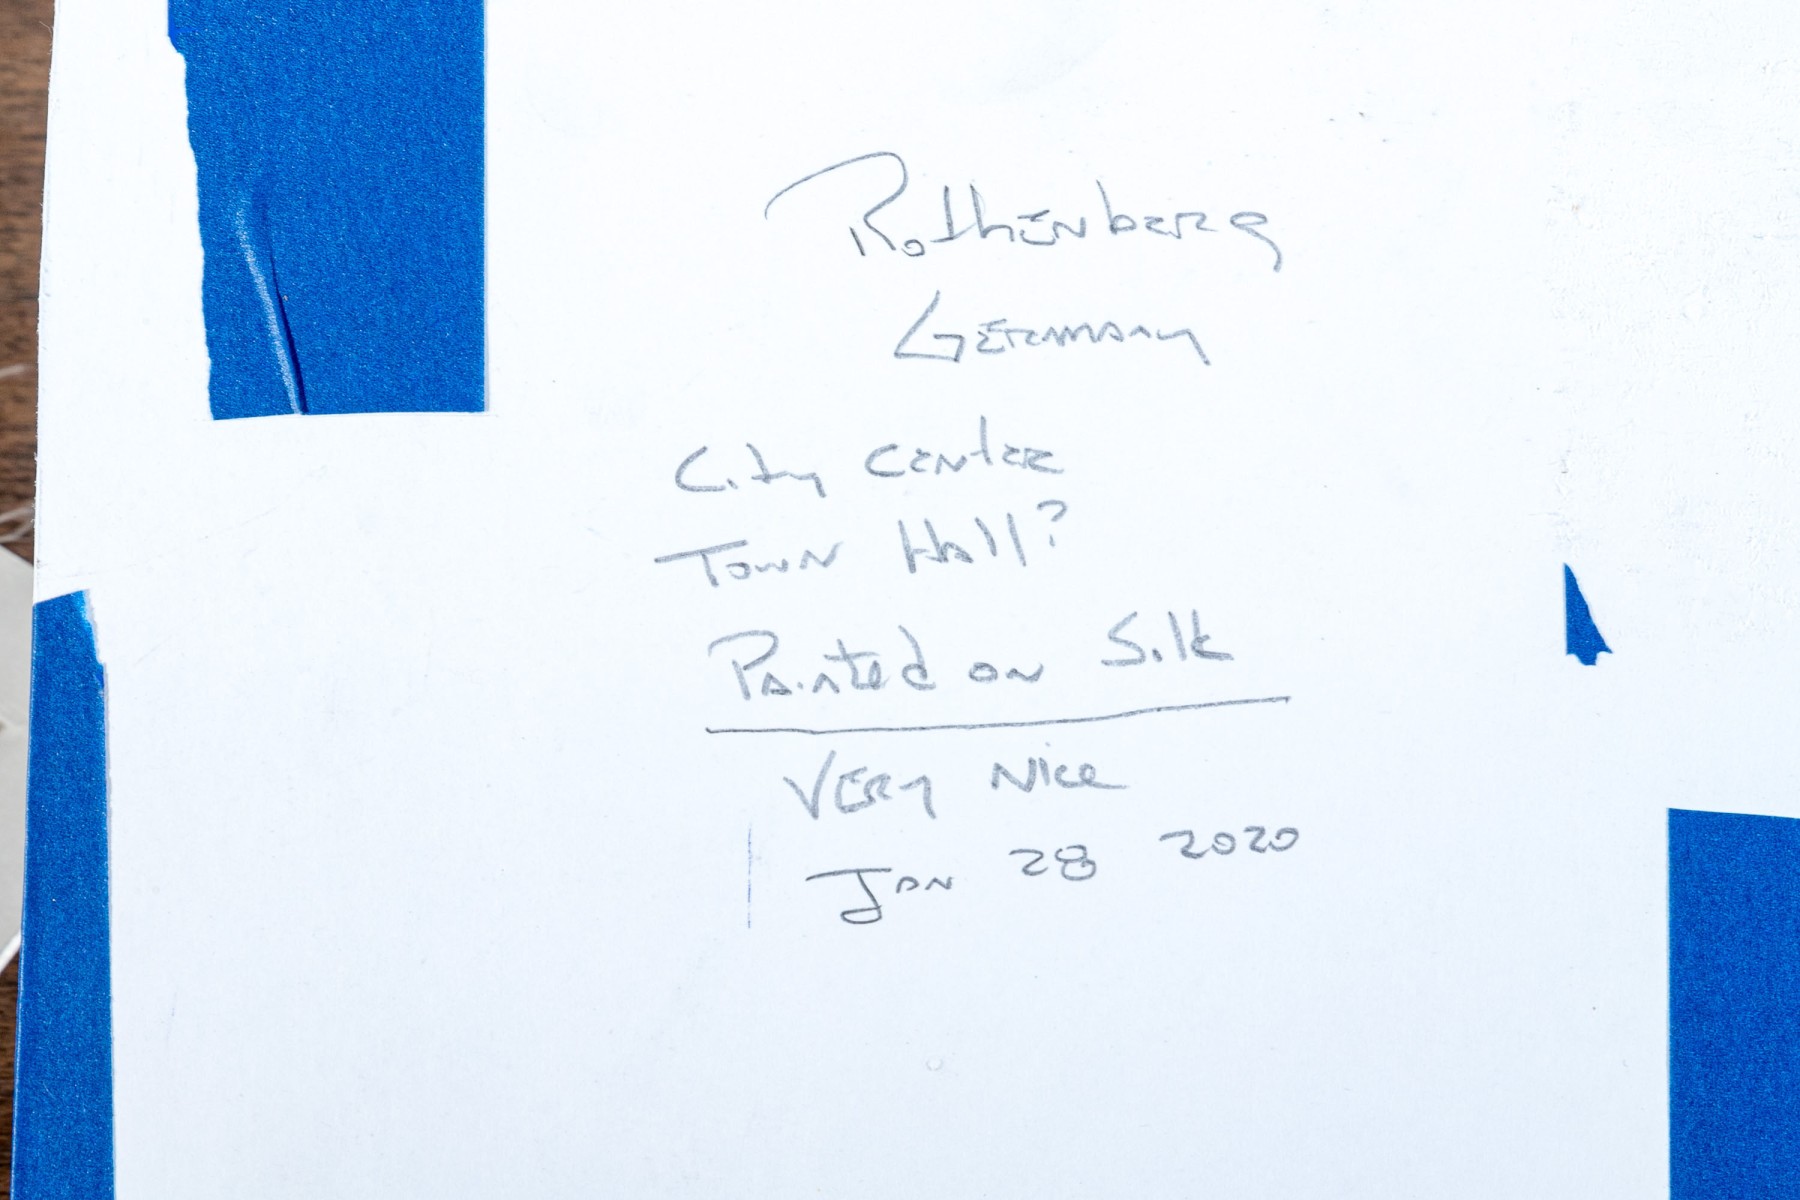 Rothenberg
Germany
City Center
Town Hall?
Painted on Silk
Very Nice
Jan 28 2020